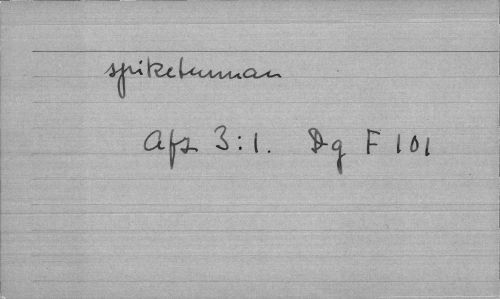 spiketunnan
Afz 3:1. Dg F 101